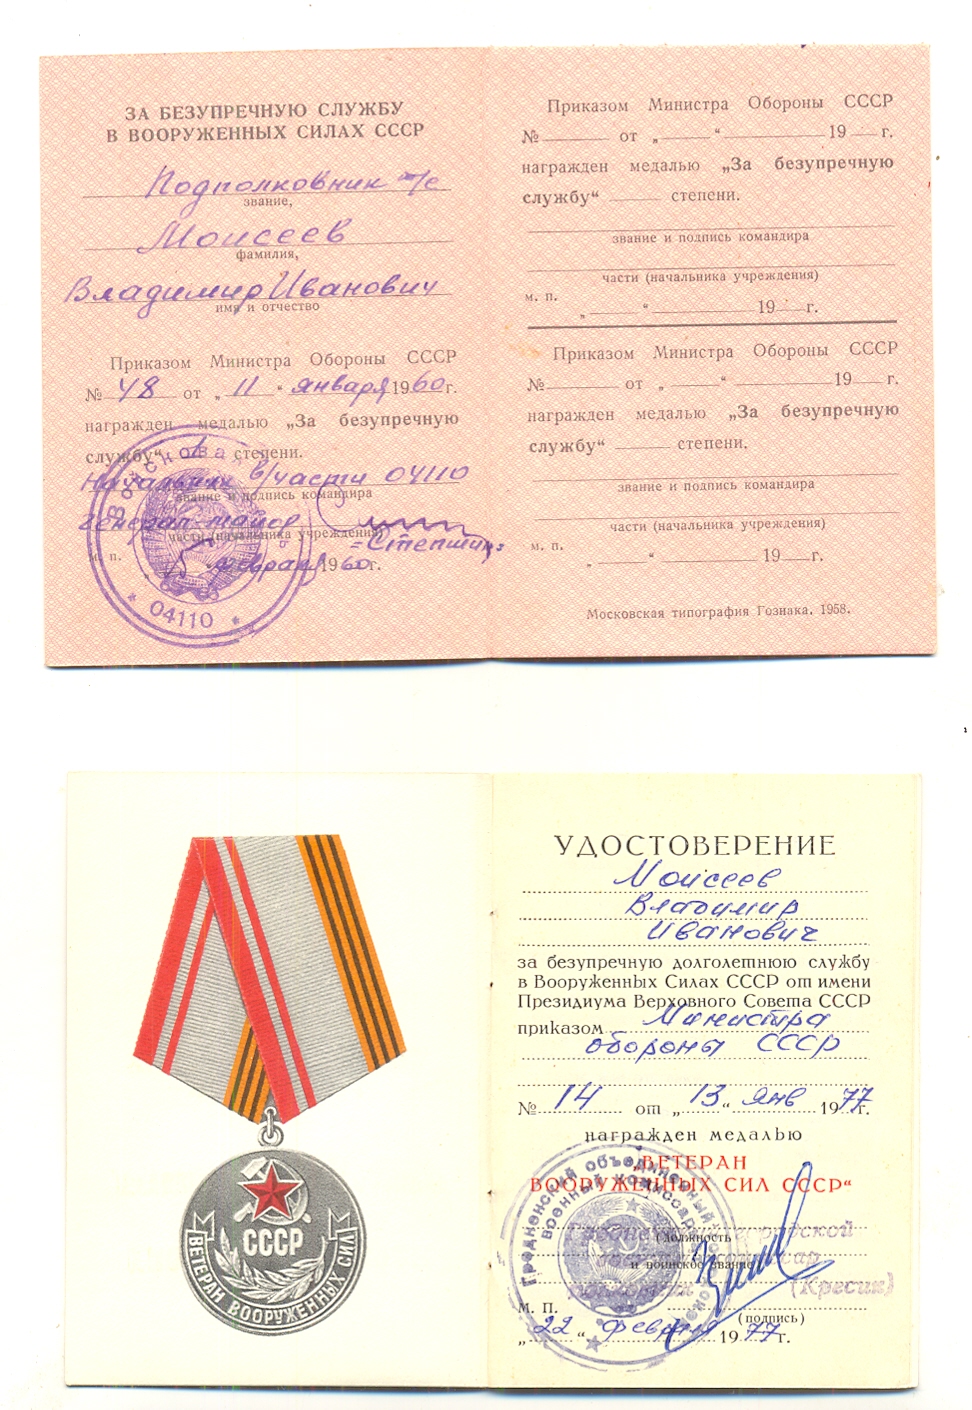 ЗА БЕЗУПРЕЧНУЮ СЛУЖБУ
В ВООРУЖЕННЫХ СИЛАХ СССР
Подполковник т/с
звание,
Моисеев
фамилия,
Владимир Иванович
имя и отчество
Приказом Министра Обороны СССР
№ 48 от „ 11 “ января 1960 г.
награжден медалью „За безупречную
службу“ I степени.
Начальник в/части 04110
звание и подпись командира
генерал-майор
части (начальника учреждения)
=Степшин=
м. п.
„ 5 “ февраля 1960 г.
Войсковая
* 04110 *
Приказом Министра Обороны СССР
№ от „ “ 19 г.
награжден медалью „За безупречную
службу“ степени.
звание и подпись командира
части (начальника учреждения)
м. п.
„ “ 19 г.
Приказом Министра Обороны СССР
№ от „ “ 19 г.
награжден медалью „За безупречную
службу“ степени.
звание и подпись командира
части (начальника учреждения)
м. п.
„ “ 19 г.
Московская типография Гознака. 1958.
СССР
ВЕТЕРАН ВООРУЖЕННЫХ СИЛ
УДОСТОВЕРЕНИЕ
Моисеев
Владимир
Иванович
за безупречную долголетнюю службу
в Вооруженных Силах СССР от имени
Президиума Верховного Совета СССР
приказом Министра
обороны СССР
№ 14 от „ 13 “ янв 1977 г.
награжден медалью
„ВЕТЕРАН
ВООРУЖЕННЫХ СИЛ СССР“
Гродненский объединенный
военный комиссариат
Гродненский городской
(должность
военный комиссар
и воинское звание)
(Кресик)
М. П.
(подпись)
„ 22 “ февраля 1977 г.